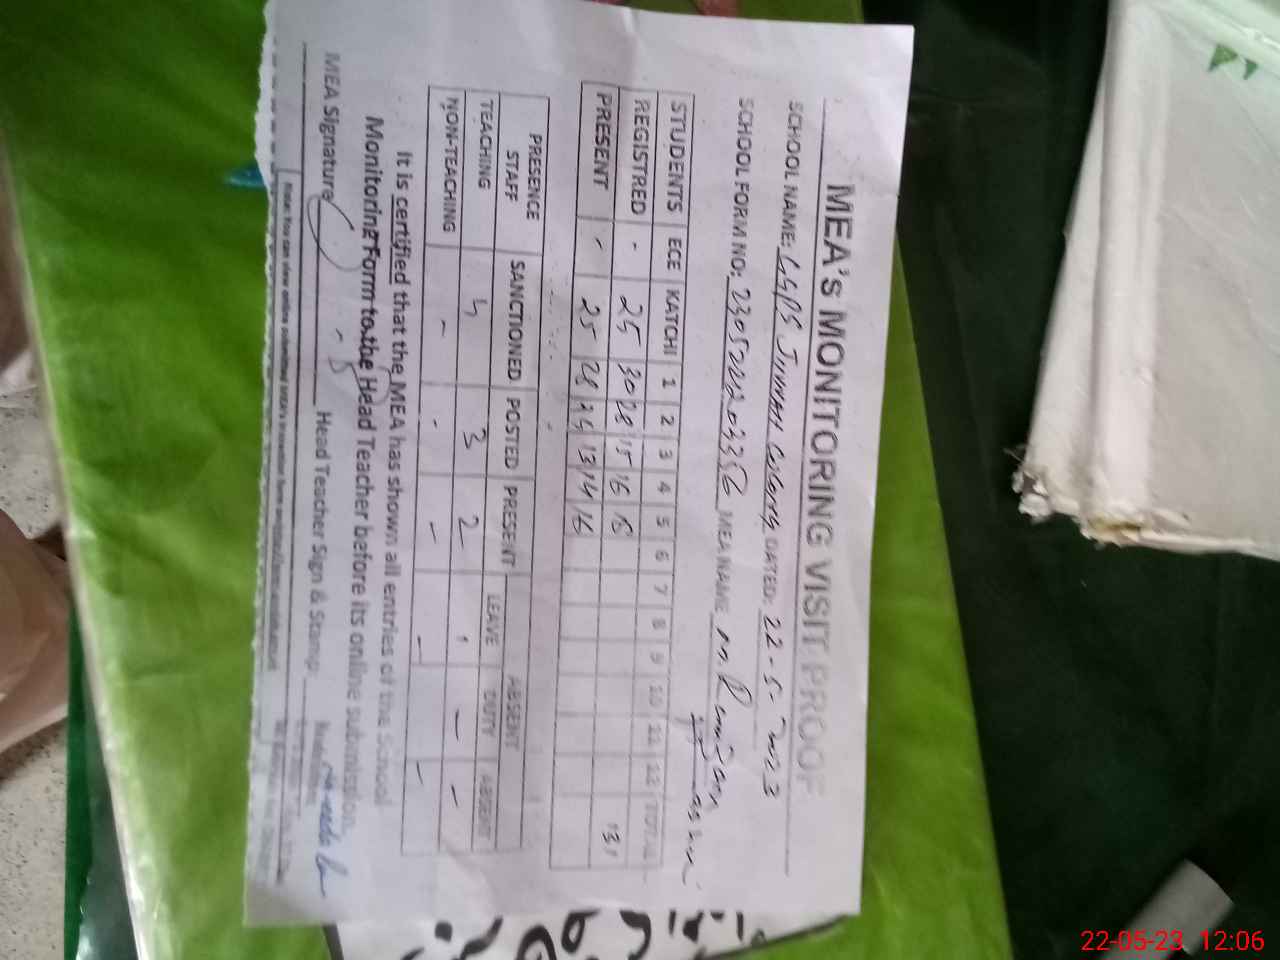 MEA's MONITORING VISIT PROOF
SCHOOL NAME: GGPS Jinnah Colony DATED: 22-5-2023
SCHOOL FORM NO: MEA NAME
STUDENTS ECE KATCHI 1 2 3 4 5 6 7 8 9 10 11 12 TOTAL
REGISTRED - 25 30 28 15 16 18 131
PRESENT - 25 28 24 13 14 16
PRESENCE ABSENT
STAFF SANCTIONED POSTED PRESENT LEAVE DUTY ABSENT
TEACHING 4 3 2 1 - -
NON-TEACHING - - - - -
It is certified that the MEA has shown all entries of the School
Monitoring Form to the Head Teacher before its online submission.
MEA Signature Head Teacher Sign & Stamp:
22-05-23 12:06